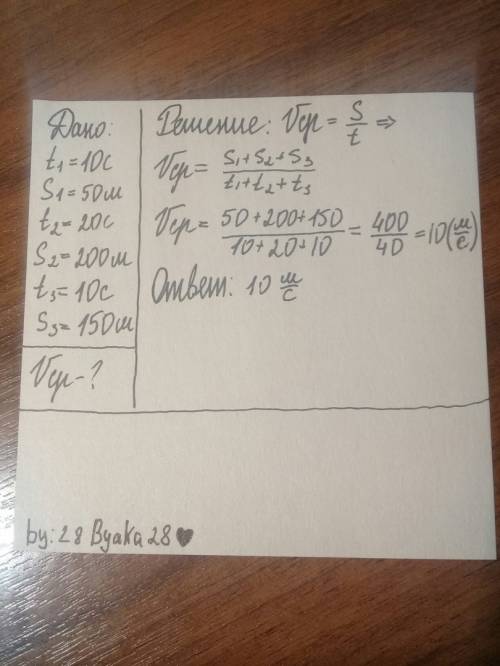 Дано:
t₁=10с
S₁=50м
t₂=20с
S₂=200м
t₃=10с
S₃=150м
Vср-?
Решение: Vср = S/t ⇒
Vср = (S₁+S₂+S₃)/(t₁+t₂+t₃)
Vср = (50+200+150)/(10+20+10) = 400/40 = 10(м/с)
Ответ: 10 м/с
by: 28 Byaka 28♥